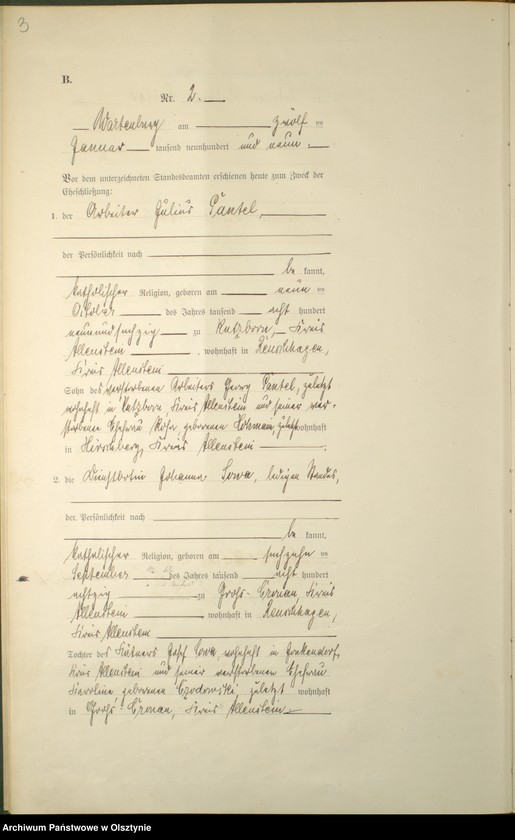 3
B.
Nr. 2.
Wartenburg am zwölf ten
Januar tausend neunhundert und neun.
Vor dem unterzeichneten Standesbeamten erschienen heute zum Zweck der
Eheschließung:
1. der Arbeiter Julius
der Persönlichkeit nach
be kannt,
katholischer Religion, geboren am neun ten
Oktober des Jahres tausend acht hundert
neunundsechzig zu Kutzborn, Kreis
Allenstein, wohnhaft in
Kreis Allenstein
Sohn des verstorbenen Arbeiters Georg zuletzt
wohnhaft in Kutzborn Kreis Allenstein und seiner ver-
storbenen Ehefrau Rosa geborenen zuletzt wohnhaft
in Hirschberg, Kreis Allenstein.
2. die Dienstbotin Johanna Sowa, ledigen Standes,
der Persönlichkeit nach
be kannt,
katholischer Religion, geboren am sechzehn ten
September des Jahres tausend acht hundert
achtzig zu Groß-Cronau, Kreis
Allenstein wohnhaft in
Kreis Allenstein
Tochter des Josef Sowa, wohnhaft in Jonkendorf,
Kreis Allenstein und seiner verstorbenen Ehefrau
Karoline, geborenen zuletzt wohnhaft
in Groß-Cronau, Kreis Allenstein
Archiwum Państwowe w Olsztynie